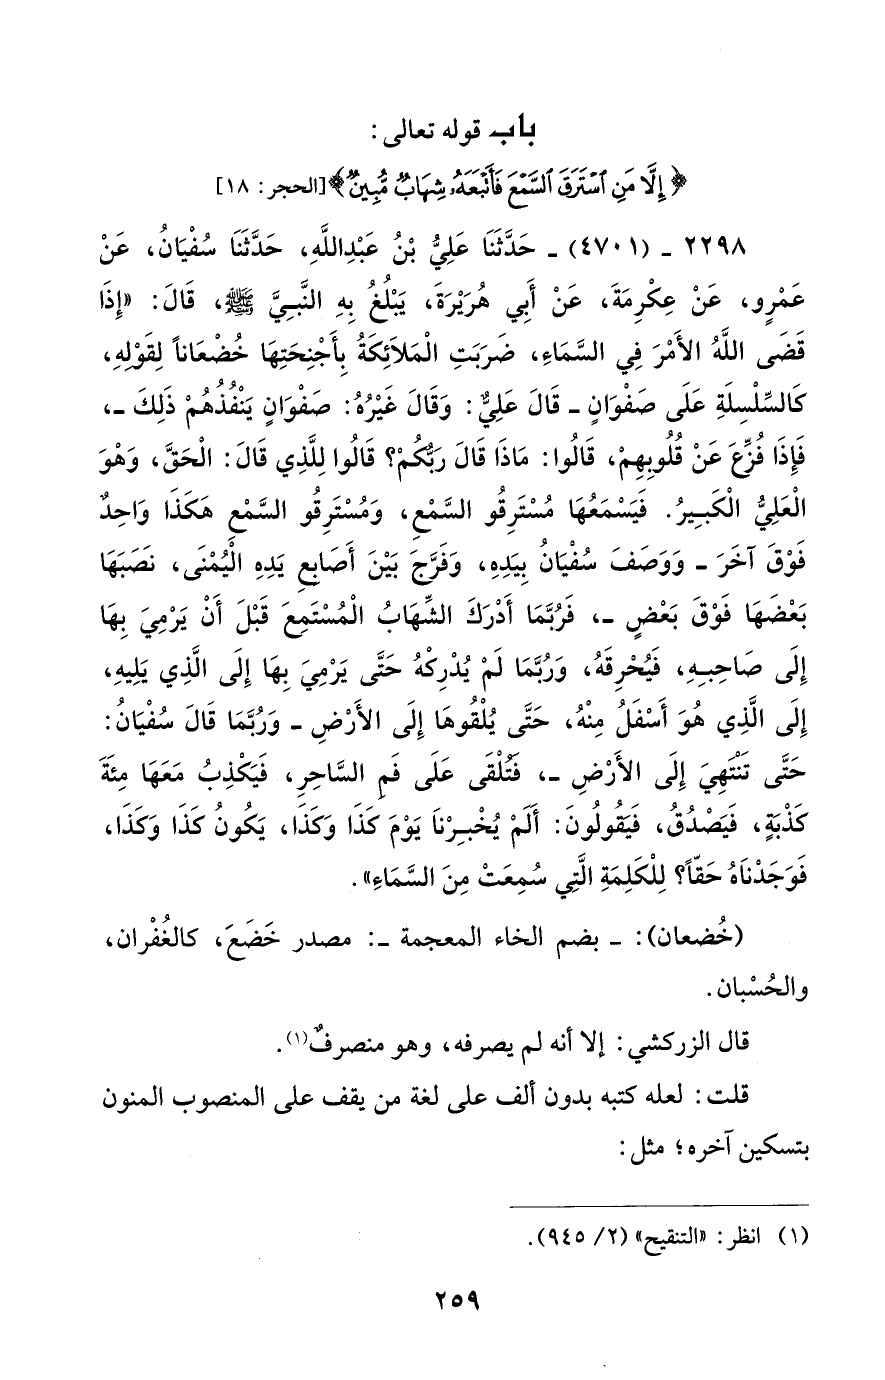 باب قوله تعالى:
﴿إِلَّا مَنِ ٱسْتَرَقَ ٱلسَّمْعَ فَأَتْبَعَهُۥ شِهَابٌ مُّبِينٌ﴾ [الحجر: ١٨]
٢٢٩٨ ـ (٤٧٠١) ـ حَدَّثَنَا عَلِيُّ بْنُ عَبْدِاللَّهِ، حَدَّثَنَا سُفْيَانُ، عَنْ
عَمْرٍو، عَنْ عِكْرِمَةَ، عَنْ أَبِي هُرَيْرَةَ، يَبْلُغُ بِهِ النَّبِيَّ ﷺ، قَالَ: «إِذَا
قَضَى اللَّهُ الأَمْرَ فِي السَّمَاءِ، ضَرَبَتِ الْمَلاَئِكَةُ بِأَجْنِحَتِهَا خُضْعَاناً لِقَوْلِهِ،
كَالسِّلْسِلَةِ عَلَى صَفْوَانٍ ـ قَالَ عَلِيٌّ: وَقَالَ غَيْرُهُ: صَفْوَانٍ يَنْفُذُهُمْ ذَلِكَ ـ،
فَإِذَا فُزِّعَ عَنْ قُلُوبِهِمْ، قَالُوا: مَاذَا قَالَ رَبُّكُمْ؟ قَالُوا لِلَّذِي قَالَ: الْحَقَّ، وَهْوَ
الْعَلِيُّ الْكَبِيرُ. فَيَسْمَعُهَا مُسْتَرِقُو السَّمْعِ، وَمُسْتَرِقُو السَّمْعِ هَكَذَا وَاحِدٌ
فَوْقَ آخَرَ ـ وَوَصَفَ سُفْيَانُ بِيَدِهِ، وَفَرَّجَ بَيْنَ أَصَابِعِ يَدِهِ الْيُمْنَى، نَصَبَهَا
بَعْضَهَا فَوْقَ بَعْضٍ ـ، فَرُبَّمَا أَدْرَكَ الشِّهَابُ الْمُسْتَمِعَ قَبْلَ أَنْ يَرْمِيَ بِهَا
إِلَى صَاحِبِهِ، فَيُحْرِقَهُ، وَرُبَّمَا لَمْ يُدْرِكْهُ حَتَّى يَرْمِيَ بِهَا إِلَى الَّذِي يَلِيهِ،
إِلَى الَّذِي هُوَ أَسْفَلُ مِنْهُ، حَتَّى يُلْقُوهَا إِلَى الأَرْضِ ـ وَرُبَّمَا قَالَ سُفْيَانُ:
حَتَّى تَنْتَهِيَ إِلَى الأَرْضِ ـ، فَتُلْقَى عَلَى فَمِ السَّاحِرِ، فَيَكْذِبُ مَعَهَا مِئَةَ
كَذْبَةٍ، فَيَصْدُقُ، فَيَقُولُونَ: أَلَمْ يُخْبِرْنَا يَوْمَ كَذَا وَكَذَا، يَكُونُ كَذَا وَكَذَا،
فَوَجَدْنَاهُ حَقّاً؟ لِلْكَلِمَةِ الَّتِي سُمِعَتْ مِنَ السَّمَاءِ».
(خُضعان): ـ بضم الخاء المعجمة ـ: مصدر خَضَعَ، كالغُفْران،
والحُسْبان.
قال الزركشي: إلا أنه لم يصرفه، وهو منصرفٌ(١).
قلت: لعله كتبه بدون ألف على لغة من يقف على المنصوب المنون
بتسكين آخره؛ مثل:
(١) انظر: «التنقيح» (٢/ ٩٤٥).
٢٥٩